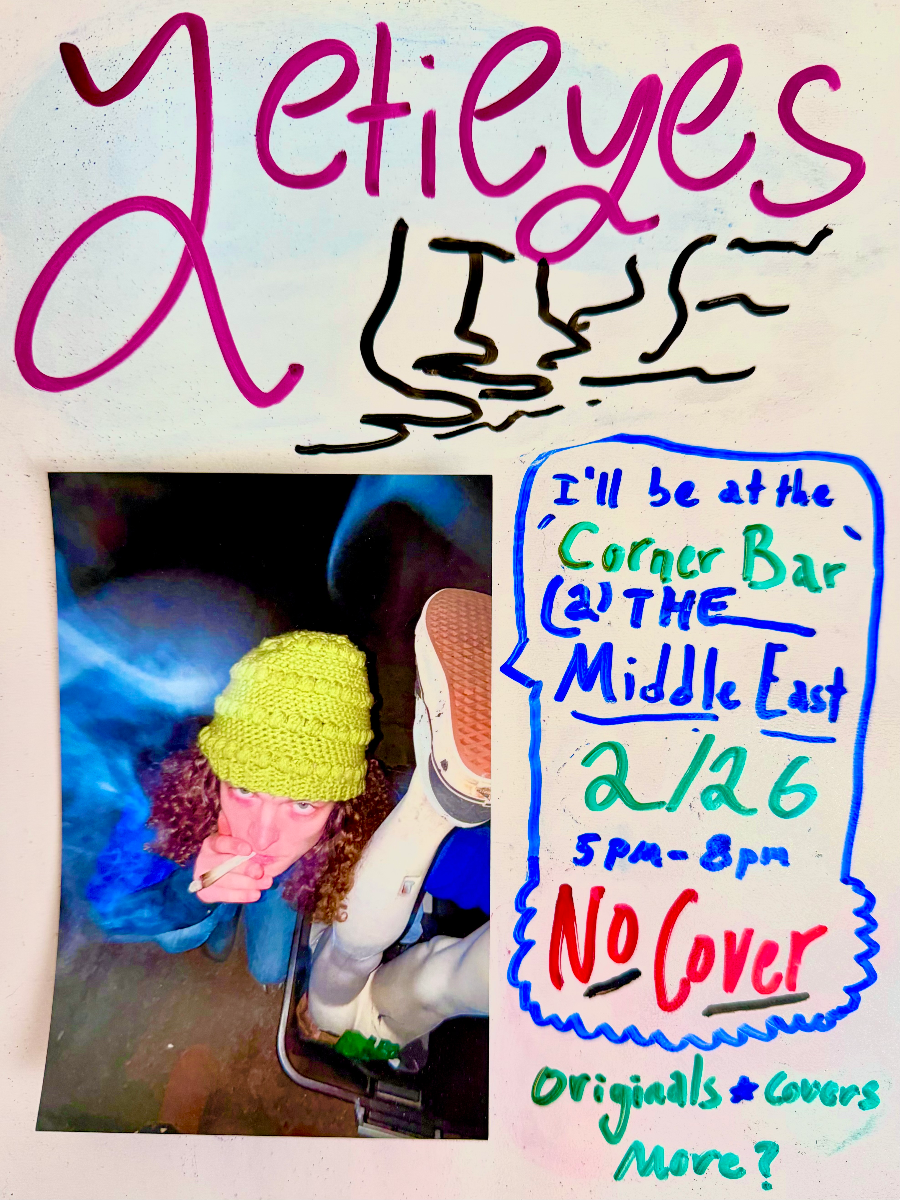 Yetieyes
LIVE
I'll be at the
"Corner Bar"
(a) THE
Middle East
2/26
5pm-8pm
No Cover
Originals ★ Covers
More?